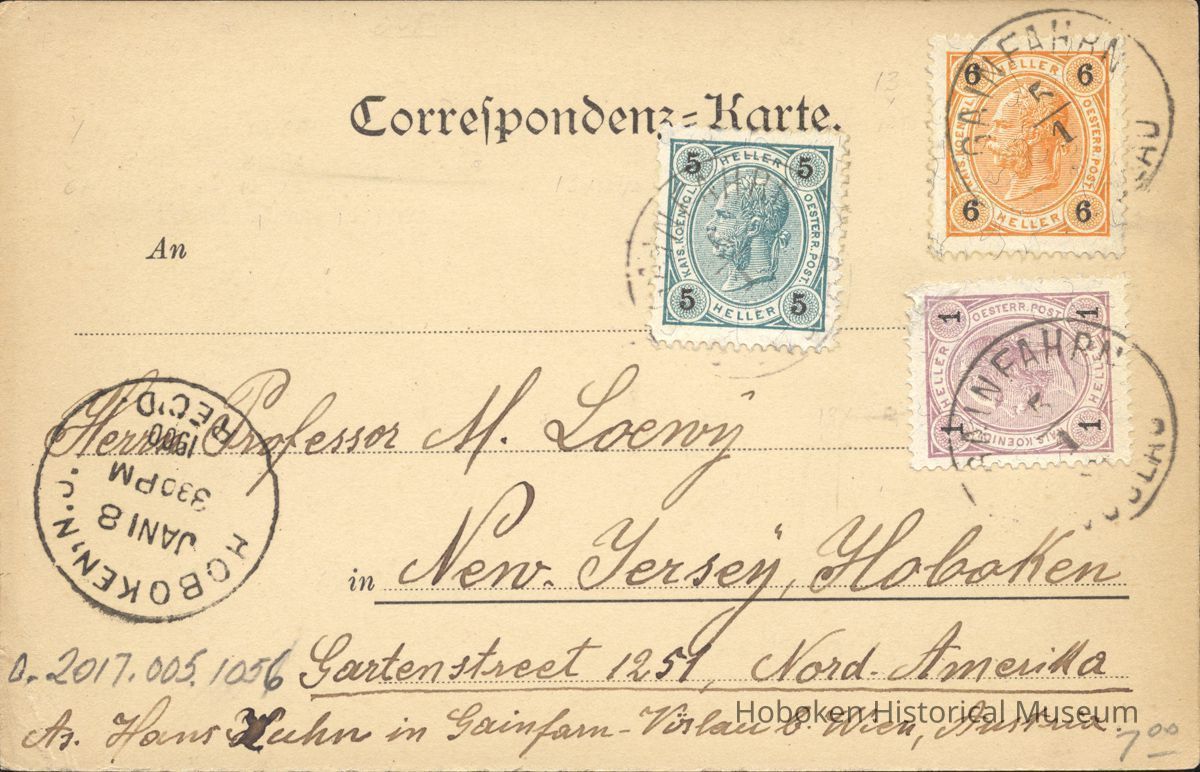 Correspondenz-Karte.
GAINFAHRN
5/1
6 HELLER 6
KAIS. KOENIGL. OESTERR. POST.
6 HELLER 6
5 HELLER 5
KAIS. KOENIGL. OESTERR. POST.
5 HELLER 5
An
1 OESTERR. POST. 1
HELLER HELLER
1 KAIS. KOENIGL. 1
GAINFAHRN
Herrn Professor M. Loewy
HOBOKEN, N.J.
JAN 18
330 PM
1900
REC'D.
in New. Jersey, Hoboken
O. 2017.005.1056
Gartenstreet 1251, Nord. Amerika
As. Hans Kuhn in Gainfarn-Vöslau b. Wien, Austria.
Hoboken Historical Museum
7 00